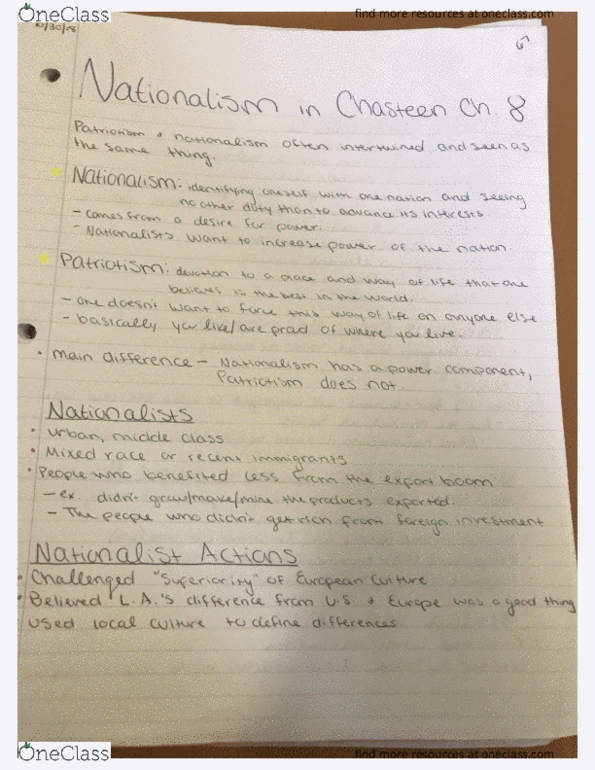 OneClass
find more resources at oneclass.com
10/30/18
Nationalism in Chasteen Ch. 8
Patriotism & nationalism often intertwined and seen as
the same thing.
Nationalism: identifying oneself with one nation and seeing
no other duty than to advance its interests.
- comes from a desire for power.
- Nationalists want to increase power of the nation
Patriotism: devotion to a place and way of life that one
believes is the best in the world.
- one doesn't want to force this way of life on anyone else
- basically you like/are proud of where you live.
• main difference - Nationalism has a power component,
Patriotism does not.
Nationalists
• urban, middle class
• Mixed race or recent immigrants
• People who benefited less from the export boom
- ex. didn't grow/make/mine the products exported.
- The people who didn't get rich from foreign investment
Nationalist Actions
• Challenged "Superiority" of European Culture
• Believed L.A.'s difference from U.S. & Europe was a good thing
used local culture to define differences
OneClass
find more resources at oneclass.com